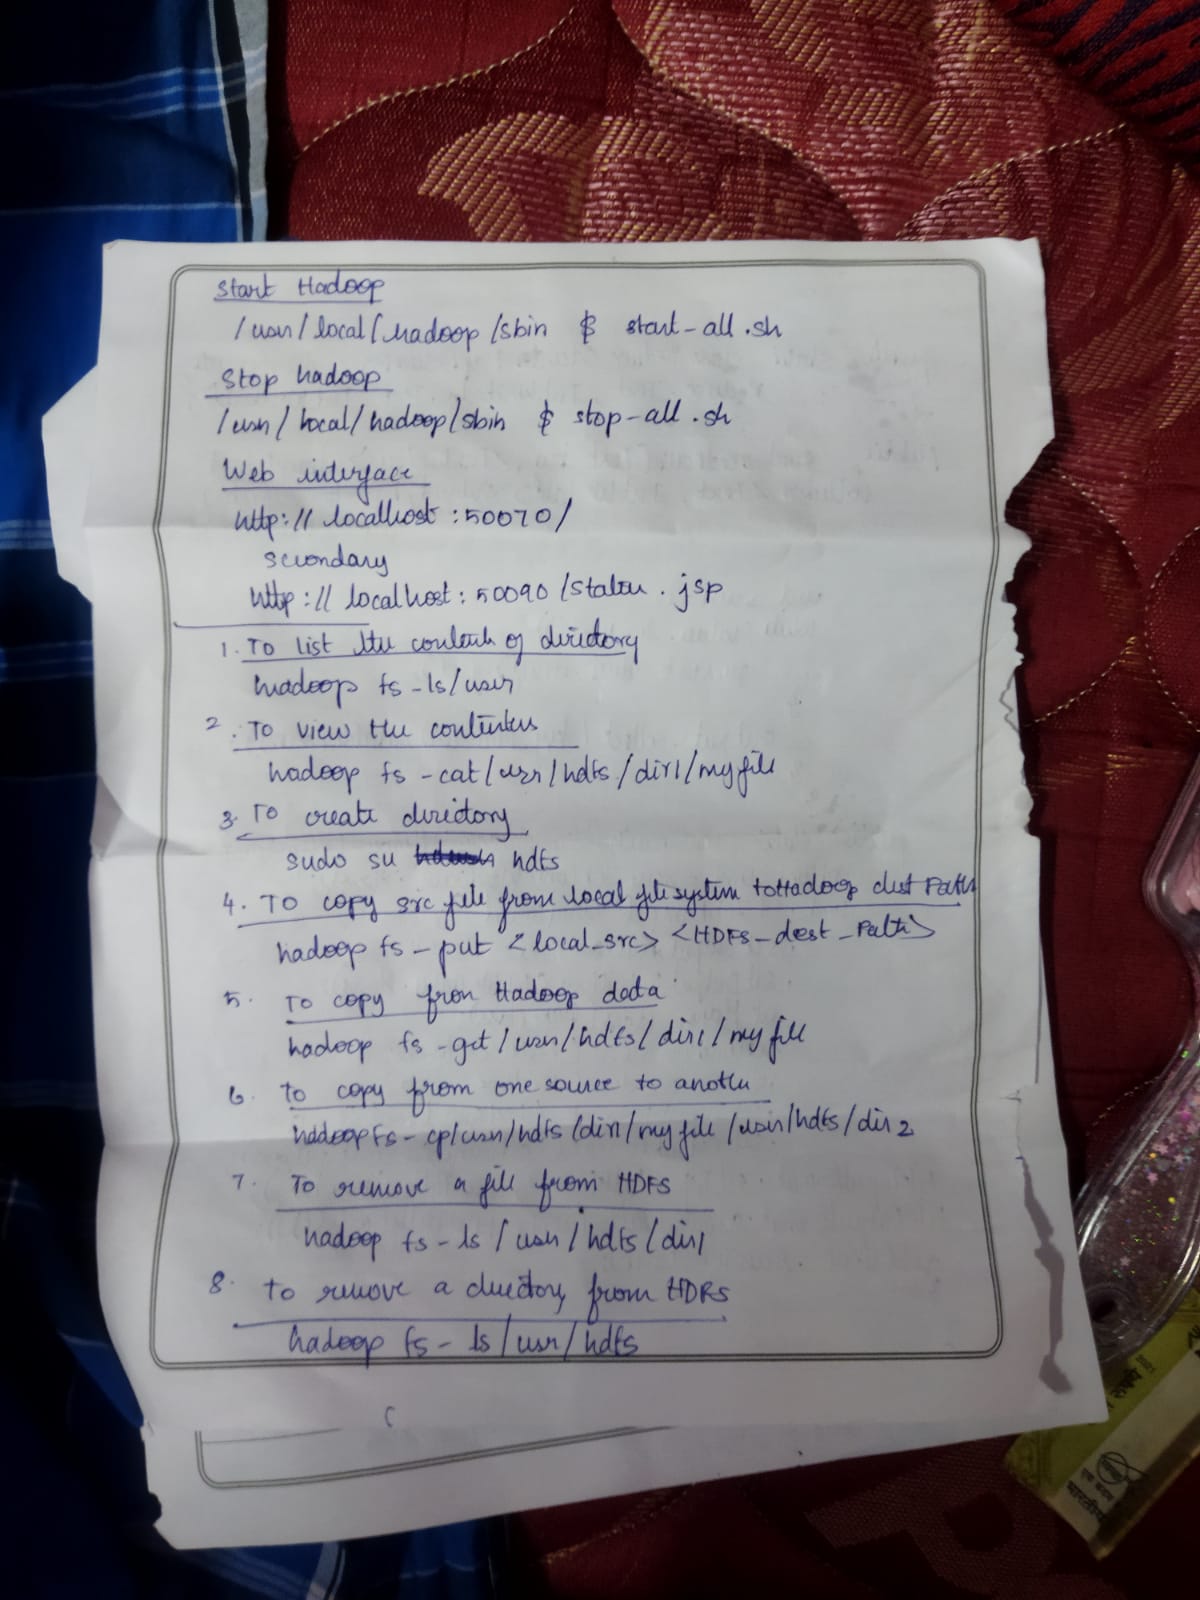 Start Hadoop
/usr/local/hadoop/sbin $ start-all.sh
Stop hadoop
/usr/local/hadoop/sbin $ stop-all.sh
Web interface
http://localhost:50070/
secondary
http://localhost:50090/status.jsp
1. To list the contents of directory
hadoop fs -ls/user
2. To view the contents
hadoop fs -cat/user/hdfs/dir1/myfile
3. To create directory
sudo su hdfs
4. To copy src file from local file system to Hadoop dest Path
hadoop fs -put <local_src> <HDFS_dest_Path>
5. To copy from Hadoop data
hadoop fs -get/user/hdfs/dir1/myfile
6. To copy from one source to another
hadoop fs -cp/user/hdfs/dir1/myfile/user/hdfs/dir2
7. To remove a file from HDFS
hadoop fs -ls/user/hdfs/dir1
8. To remove a directory from HDFS
hadoop fs -ls/user/hdfs